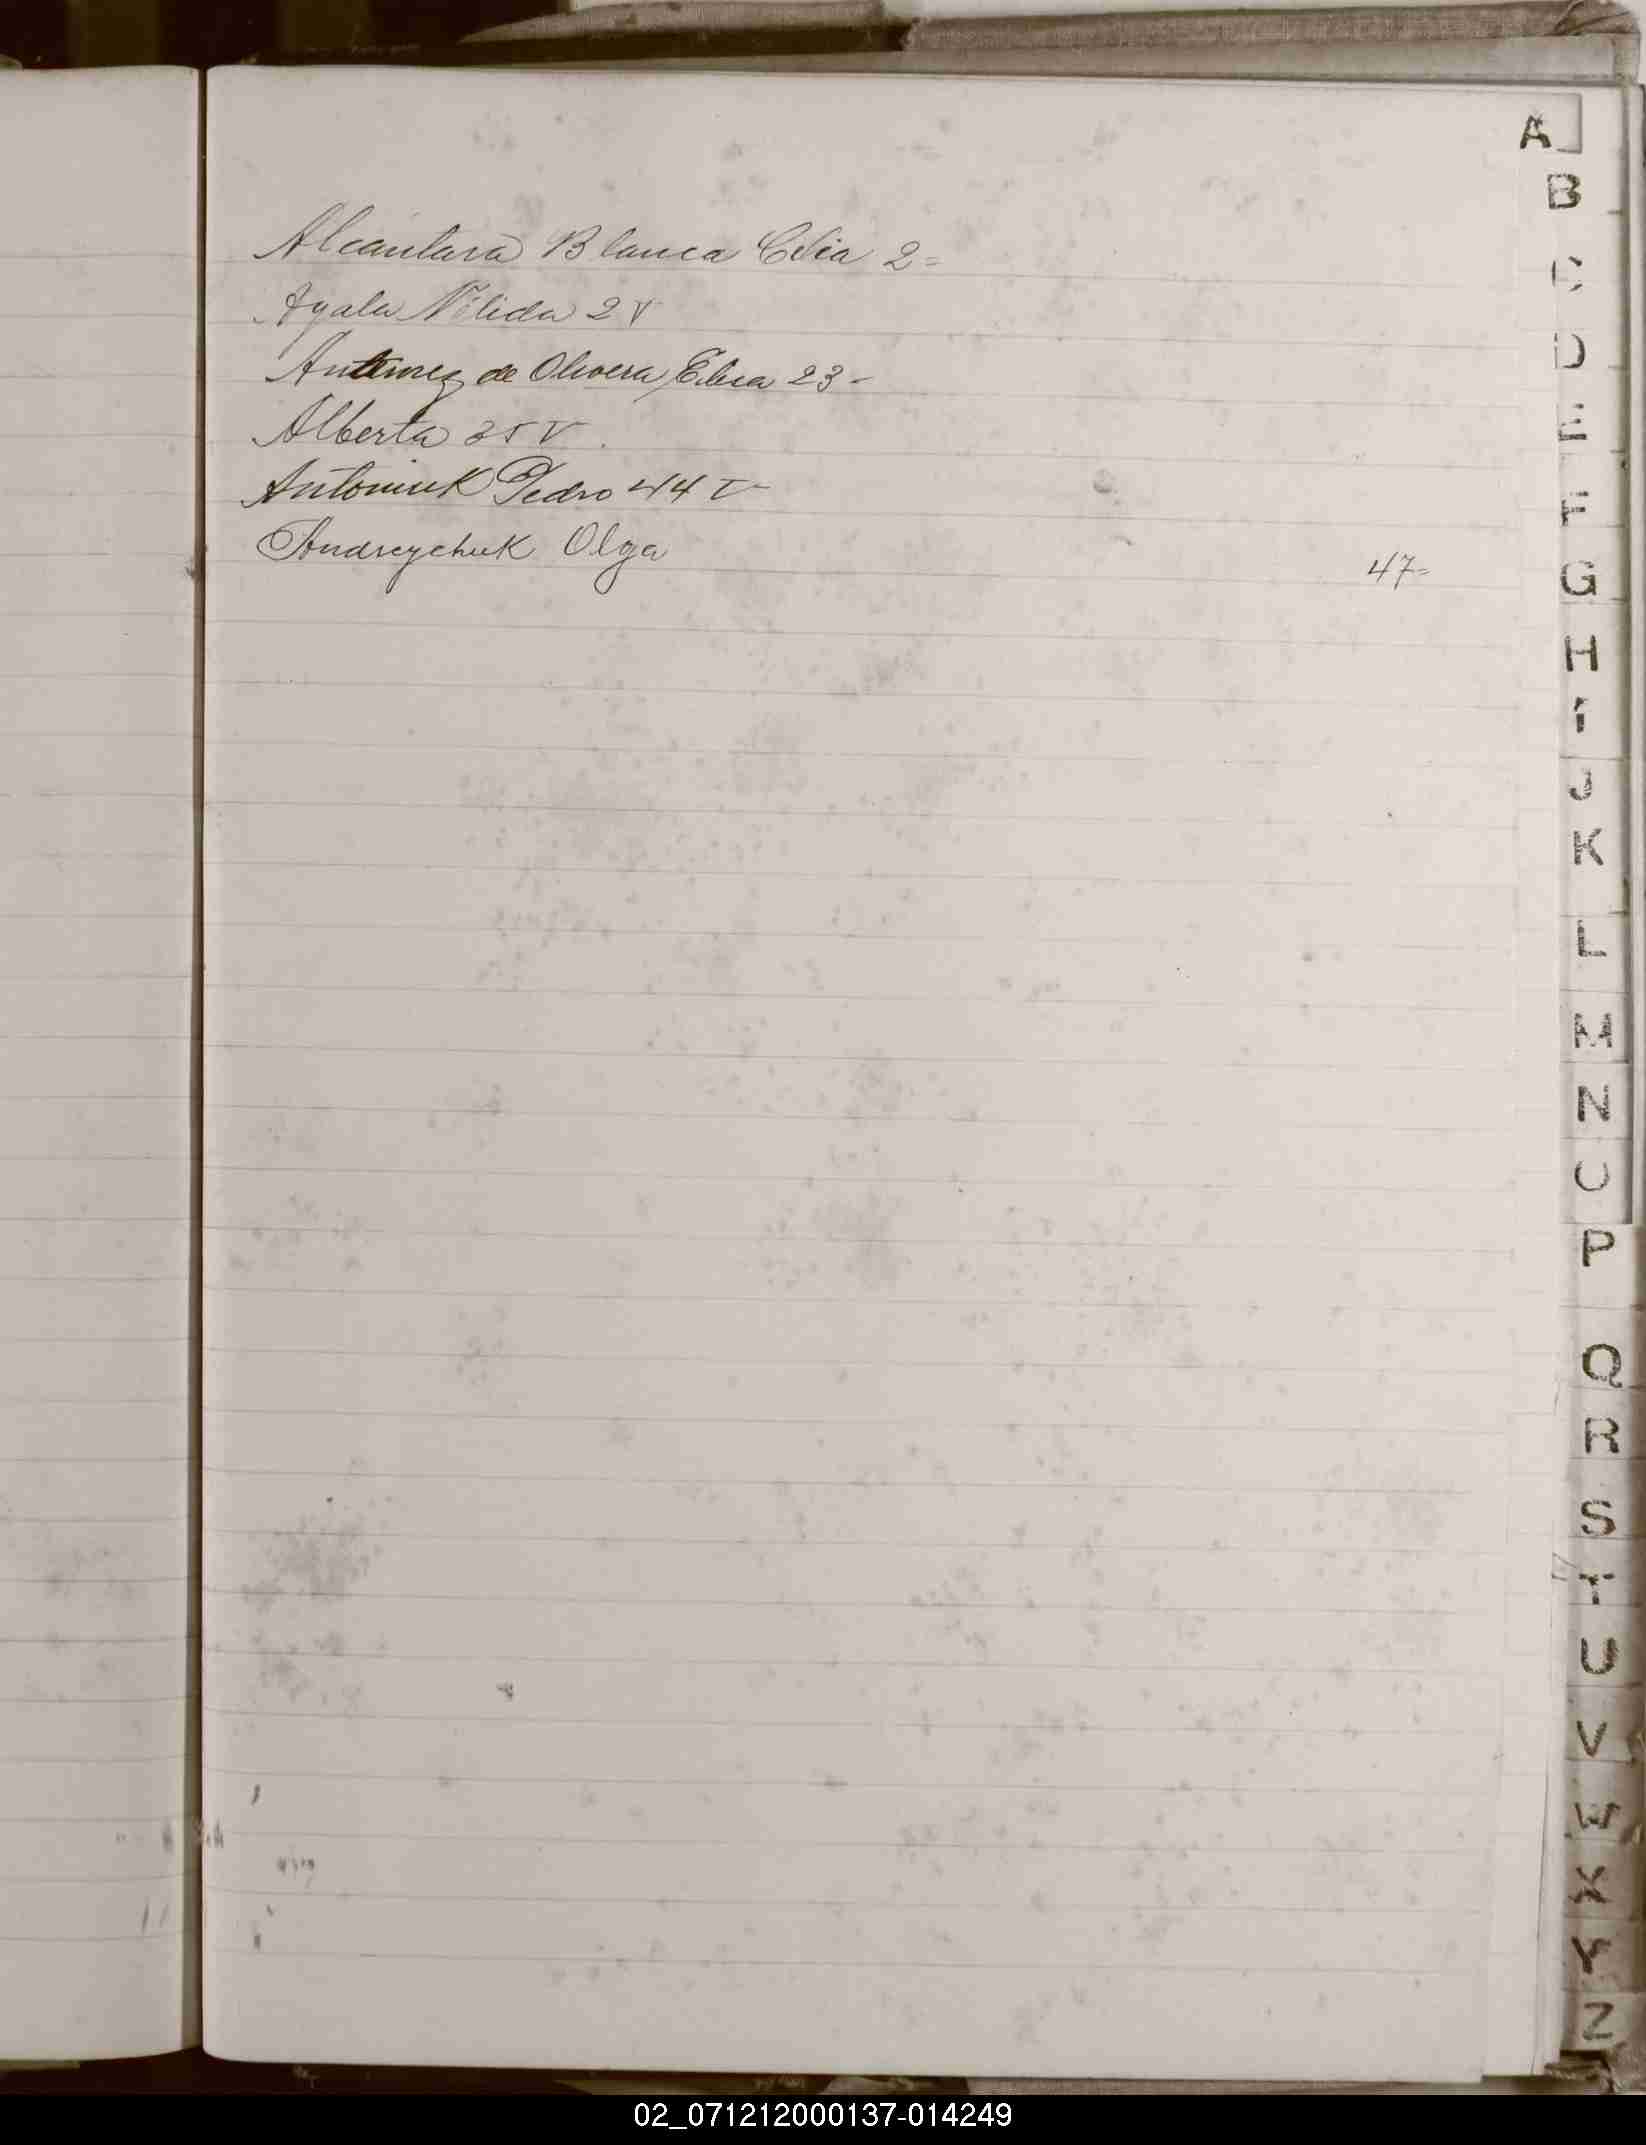 Alcántara Blanca Celia 2=
Ayala Nélida 2 V
Antunez de Olivera Elsa 23-
Alberta 35 V
Antoniuk Pedro 44 V-
Andreychuk Olga 47=
A
B
C
D
E
F
G
H
I
J
K
L
M
N
O
P
Q
R
S
T
U
V
W
X
Y
Z
02_071212000137-014249